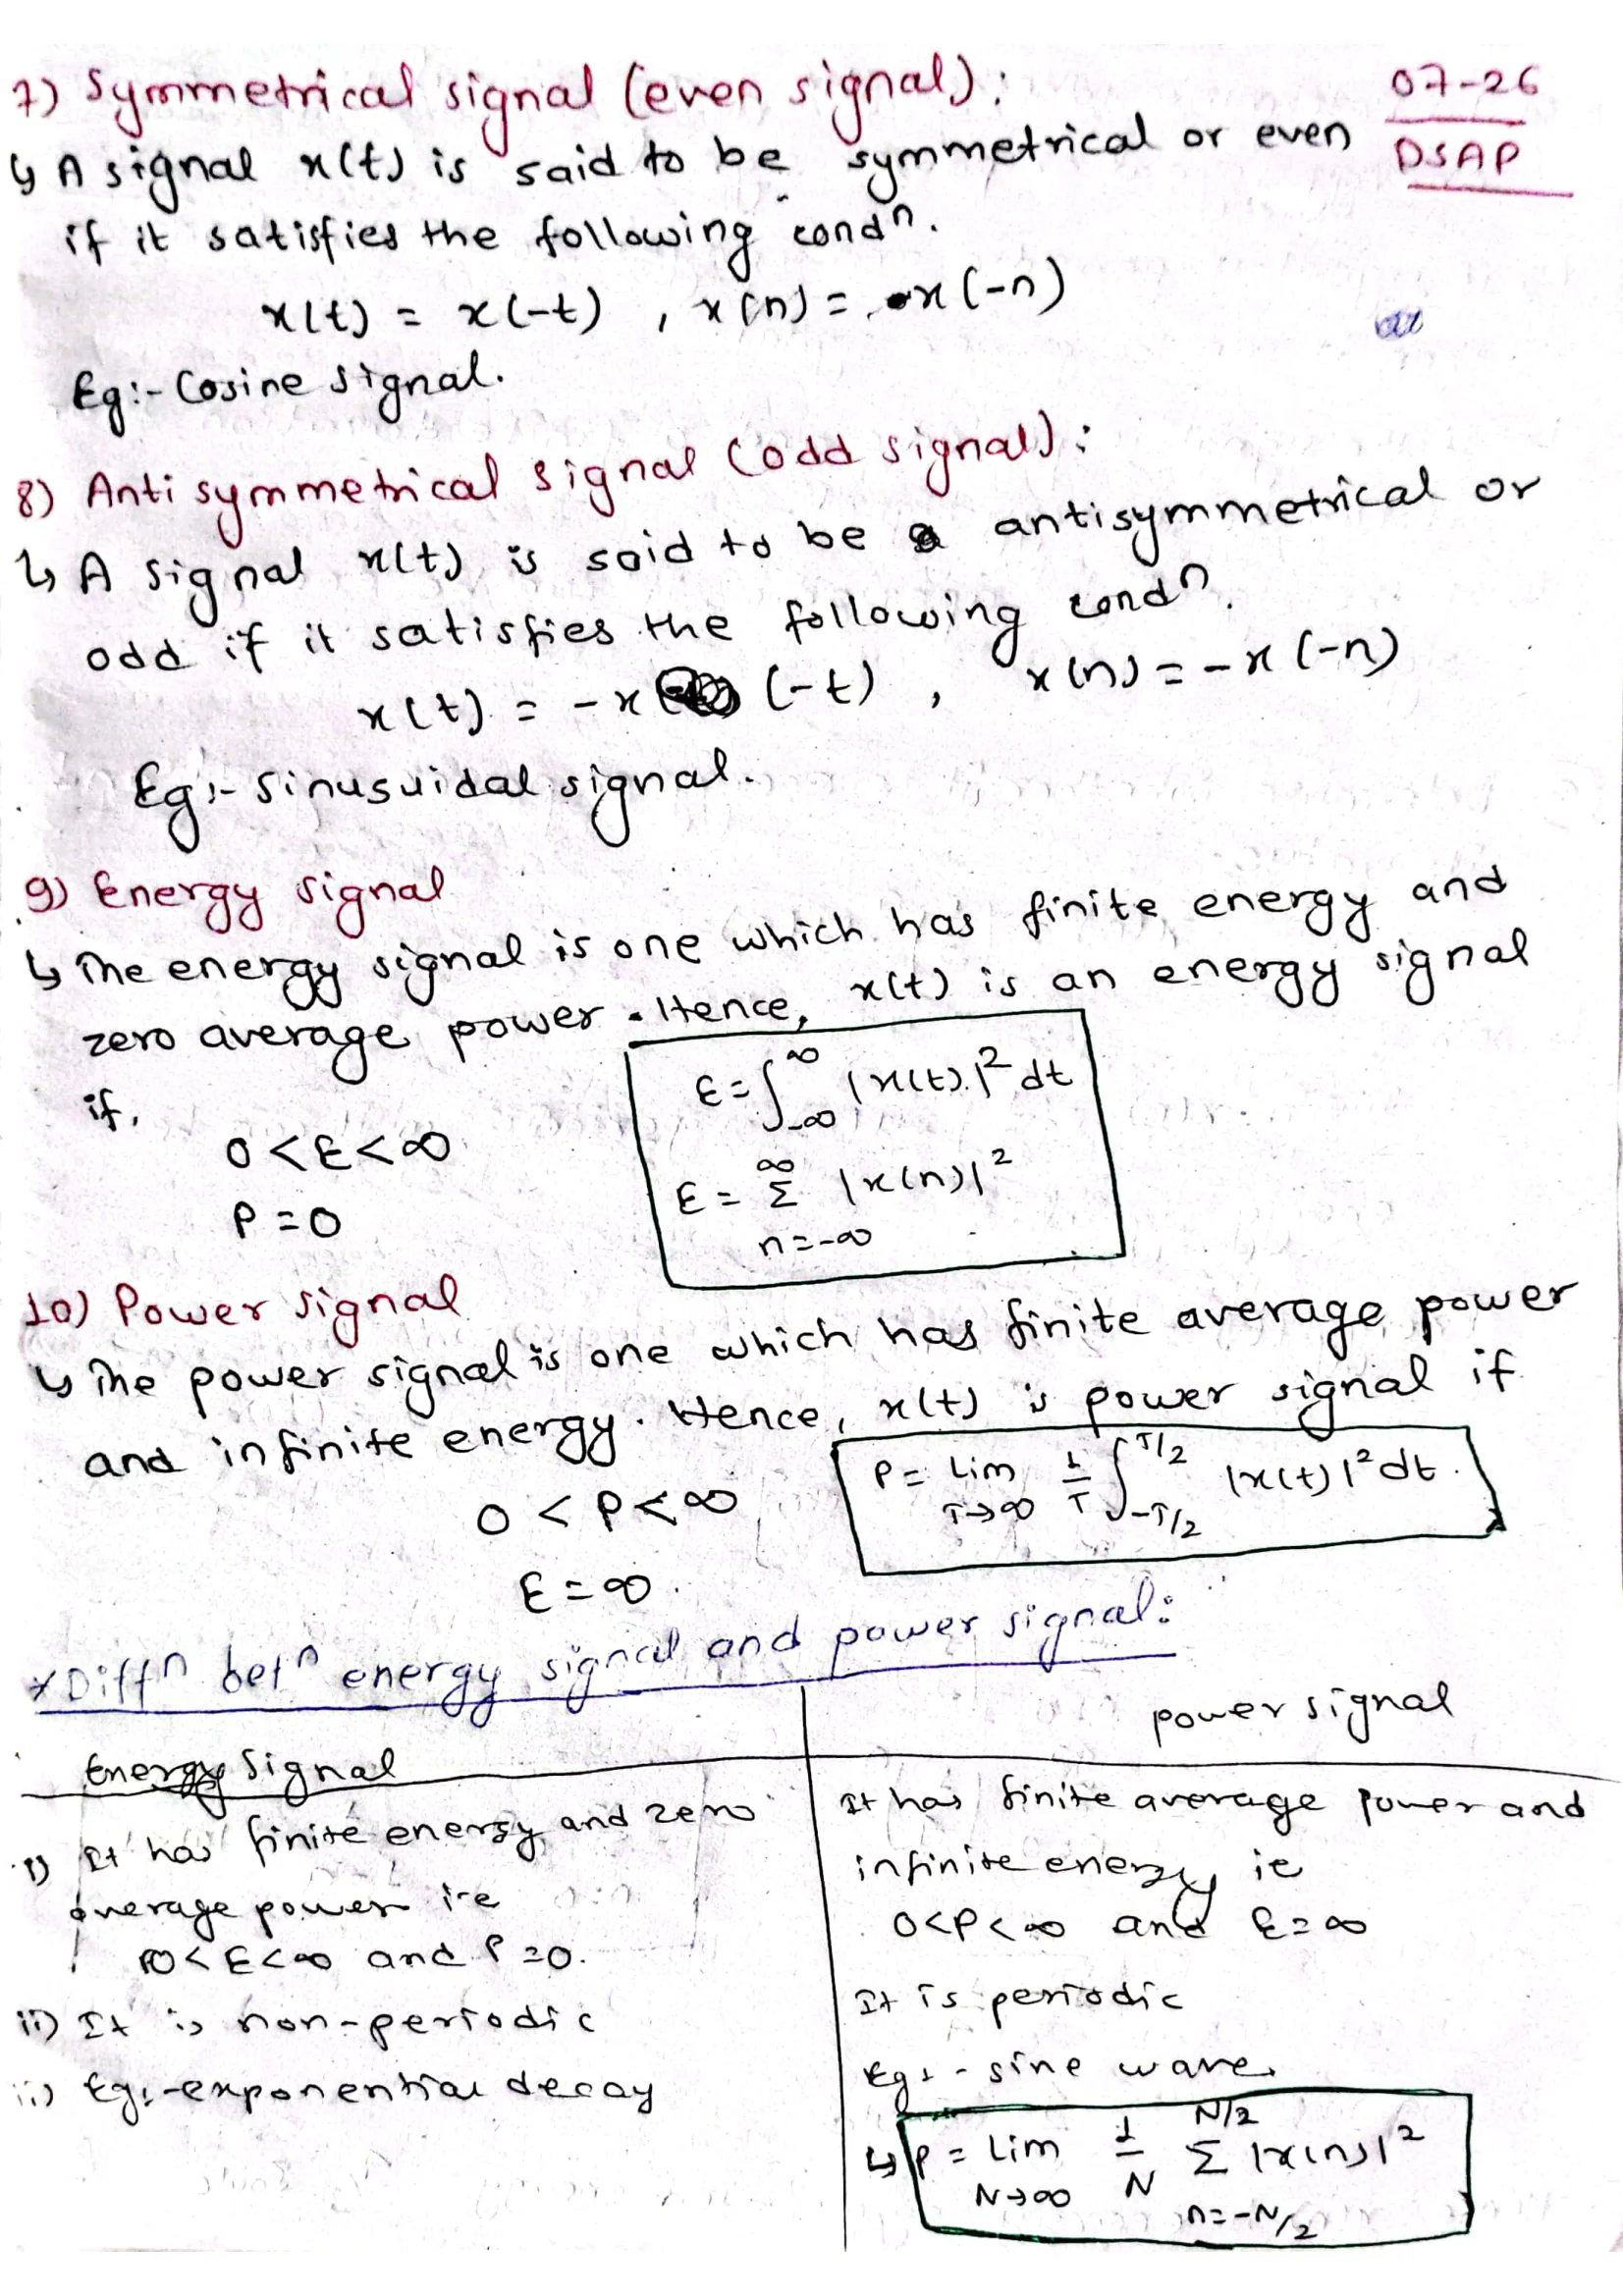 07-26
DSAP
7) Symmetrical signal (even signal):
↳ A signal x(t) is said to be symmetrical or even
if it satisfies the following condⁿ.
x(t) = x(-t) , x(n) = x(-n)
Eg:- Cosine signal.
8) Anti symmetrical signal (odd signal):
↳ A signal x(t) is said to be a antisymmetrical or
odd if it satisfies the following condⁿ.
x(t) = -x (-t) , x(n) = -x(-n)
Eg:- Sinusuidal signal.
9) Energy signal
↳ The energy signal is one which has finite energy and
zero average power. Hence, x(t) is an energy signal
if,
0 < E < ∞
P = 0
E = ∫_{-∞}^{∞} |x(t)|² dt
E = Σ_{n=-∞}^{∞} |x(n)|²
10) Power signal
↳ The power signal is one which has finite average power
and infinite energy. Hence, x(t) is power signal if
0 < P < ∞
E = ∞.
P = Lim_{T→∞} 1/T ∫_{-T/2}^{T/2} |x(t)|² dt.
* Diffⁿ betⁿ energy signal and power signal:
Energy Signal
i) It has finite energy and zero
average power i-e
0 < E < ∞ and P = 0.
ii) It is non-periodic
ii) Eg:- exponential decay
power signal
It has finite average power and
infinite energy ie
0 < P < ∞ and E = ∞
It is periodic
Eg:- sine wave.
↳ P = Lim_{N→∞} 1/N Σ_{n=-N/2}^{N/2} |x(n)|²